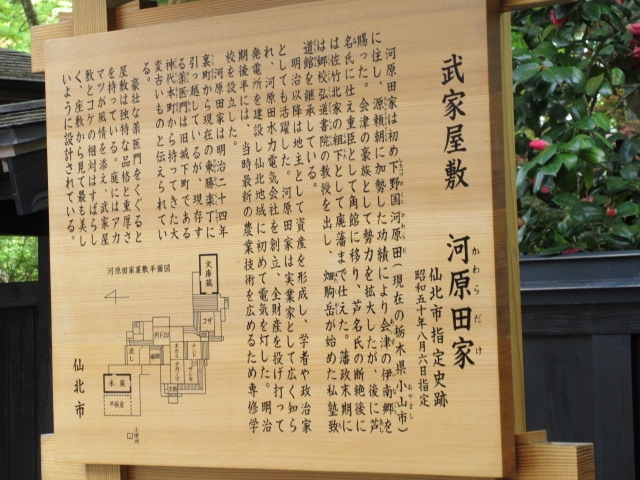 武家屋敷 河原田家
かわらだけ
仙北市指定史跡
昭和五十年八月六日指定
河原田家は初め下野国河原田(現在の栃木県小山市)
に住し、源頼朝に加勢した功績により会津の伊南郷を
賜った。会津の豪族として勢力を拡大したが、後に芦
名氏に仕え重臣として角館に移り、芦名氏の断絶後に
は佐竹北家の組下として廃藩まで仕えた。藩政末期に
は郷校弘道書院の教授を出し、畑駒岳が始めた私塾致
道館を継承している。
明治以降は地主として資産を形成し、学者や政治家
としても活躍した。河原田家は実業家として広く知ら
れ、河原田水力電気会社を創立、全財産を投げ打って
発電所を建設し仙北地域に初めて電気を灯した。明治
期後半には、当時最新の農業技術を広めるため専修学
校を設立した。
河原田家は明治二十四年
裏町から現在の東勝楽丁に
引っ越しているが、現存す
る薬医門は旧城下町である
神代本町から持ってきた大
変古いものと伝えられてい
る。
豪壮な薬医門をくぐると
屋敷は独特な品格と重厚さ
を持っている。庭にはアカ
マツが風情を添え、武家屋
敷とコケの相対はすばらし
く、座敷から見て最も美し
いように設計されている。
河原田家屋敷平面図
文庫蔵
米蔵
仙北市